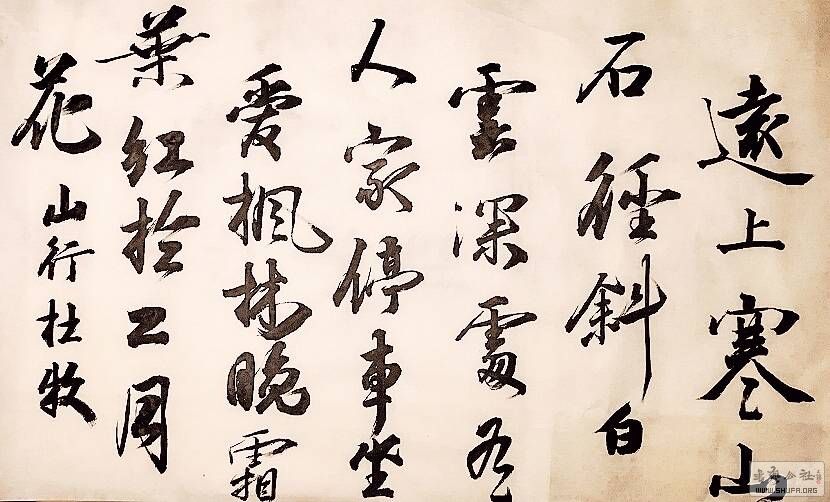 遠上寒山
石徑斜白
雲深處有
人家停車坐
愛楓林晚霜
葉紅於二月
花 山行杜牧
書法公社
WWW.SHUFA.ORG